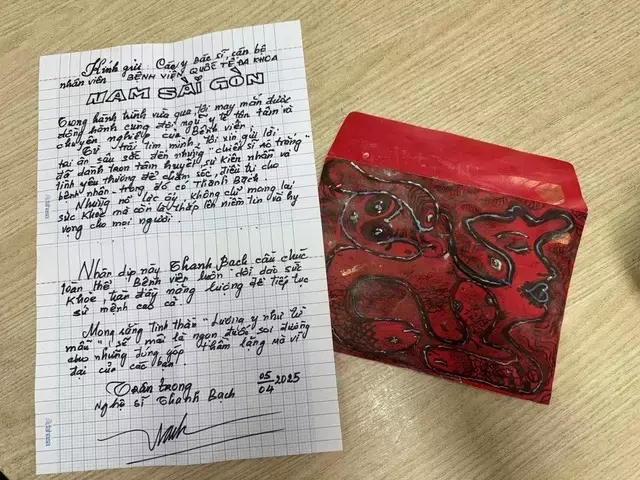 Kính gửi: Các y bác sĩ, cán bộ
nhân viên BỆNH VIỆN QUỐC TẾ ĐA KHOA
NAM SÀI GÒN
Trong hành trình vừa qua tôi may mắn được
đồng hành cùng đội ngũ y tế tận tâm và
chuyên nghiệp của Bệnh viện.
Từ trái tim mình, tôi xin gửi lời
tri ân sâu sắc đến những "chiến sĩ áo trắng"
đã dành trọn tâm huyết, sự kiên nhẫn và
tình yêu thương để chăm sóc, điều trị cho
bệnh nhân - trong đó có Thanh Bạch
Những nỗ lực ấy, không chỉ mang lại
sức khỏe mà còn là thắp lên niềm tin và hy
vọng cho mọi người.
Nhân dịp này Thanh Bạch cầu chúc
toàn thể Bệnh viện luôn dồi dào sức
khỏe, tràn đầy năng lượng để tiếp tục
sứ mệnh cao cả
Mong rằng tinh thần "Lương y như từ
mẫu" sẽ mãi là ngọn đuốc soi đường
cho những đóng góp thầm lặng mà vĩ
đại của các bạn!
Trân trọng 05/04 2025
Nghệ sĩ Thanh Bạch
Bach